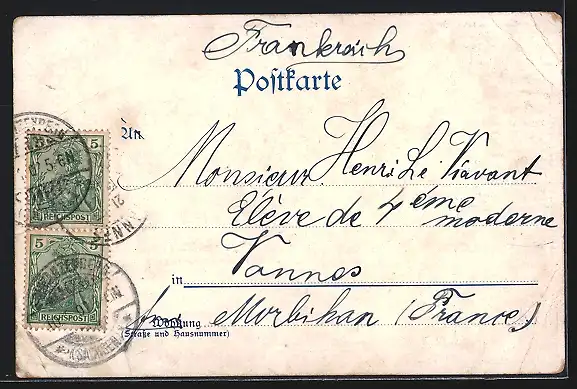 Frankreich
Postkarte
An
Monsieur Henri Le Viavant
Elève de 4ème moderne
Vannes
in
Morbihan (France)
Wohnung
(Straße und Hausnummer)
5
5-6N
REICHSPOST
5 5
REICHSPOST